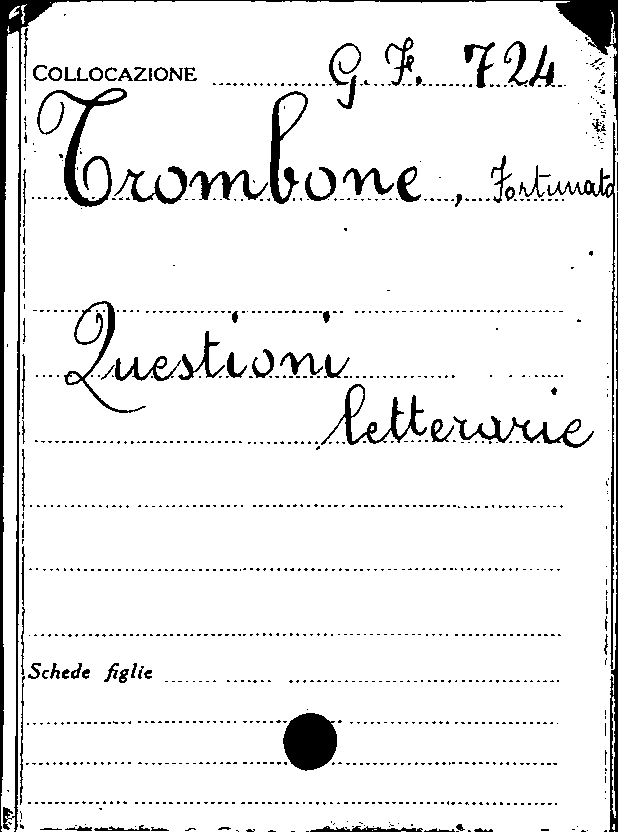 COLLOCAZIONE G. F. 724
Trombone, Fortunato
Questioni
letterarie
Schede figlie